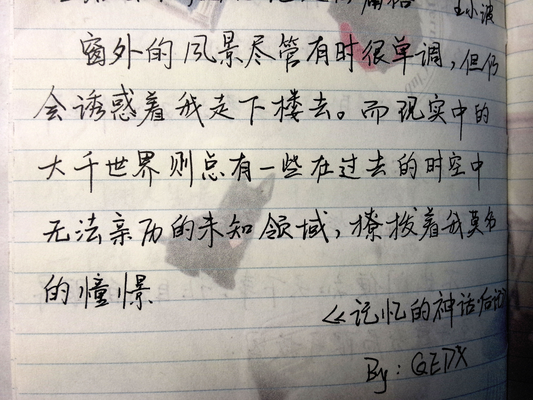 王小波
窗外的风景尽管有时很单调，但仍
会诱惑着我走下楼去。而现实中的
大千世界则总有一些在过去的时空中
无法亲历的未知领域，撩拨着我莫名
的憧憬
《记忆的神话·后记》
By：QEDX